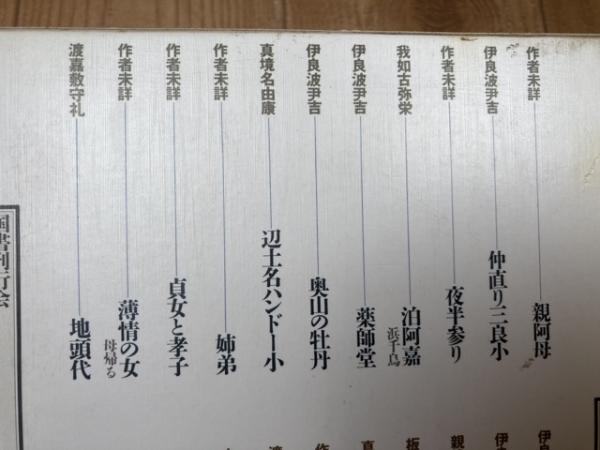 作者未詳 親阿母
伊良波尹吉 仲直り三良小
作者未詳 夜半参り
我如古弥栄 泊阿嘉 浜千鳥
伊良波尹吉 薬師堂
伊良波尹吉 奥山の牡丹
真境名由康 辺土名ハンドー小
作者未詳 姉弟
作者未詳 貞女と孝子
作者未詳 薄情の女 母帰る
渡嘉敷守礼 地頭代
伊良
伊
親
板
真
作
渡
国書刊行会